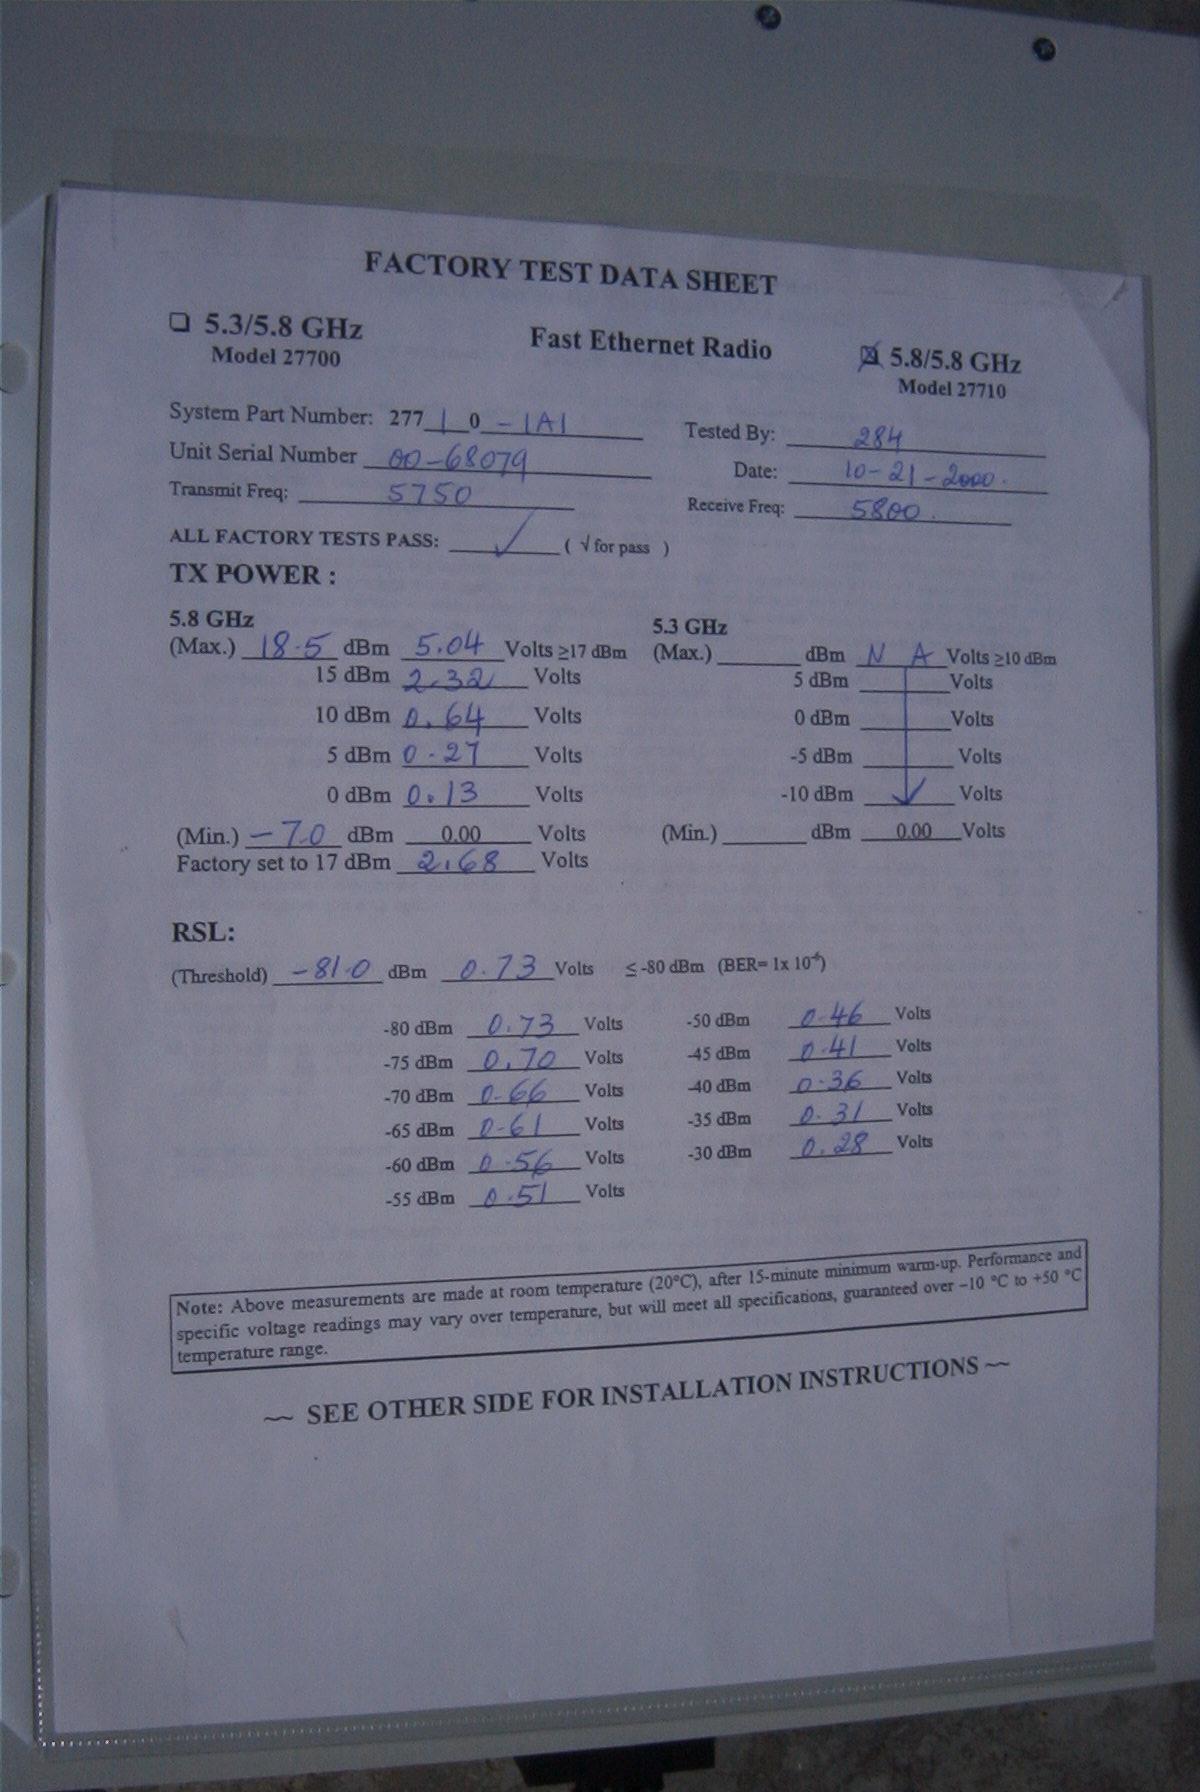 FACTORY TEST DATA SHEET
❏ 5.3/5.8 GHz Fast Ethernet Radio ☒ 5.8/5.8 GHz
Model 27700 Model 27710
System Part Number: 277 1 0 - 1A1 Tested By: 284
Unit Serial Number 00-68079 Date: 10-21-2000.
Transmit Freq: 5750 Receive Freq: 5800.
ALL FACTORY TESTS PASS: ✓ ( √ for pass )
TX POWER :
5.8 GHz 5.3 GHz
(Max.) 18.5 dBm 5.04 Volts ≥17 dBm (Max.) ____ dBm N A Volts ≥10 dBm
15 dBm 2.32 Volts 5 dBm ____ Volts
10 dBm 0.64 Volts 0 dBm ____ Volts
5 dBm 0.27 Volts -5 dBm ____ Volts
0 dBm 0.13 Volts -10 dBm ____ Volts
(Min.) -7.0 dBm 0.00 Volts (Min.) ____ dBm 0.00 Volts
Factory set to 17 dBm 2.68 Volts
RSL:
(Threshold) -81.0 dBm 0.73 Volts ≤ -80 dBm (BER= 1x 10⁻⁶)
-80 dBm 0.73 Volts -50 dBm 0.46 Volts
-75 dBm 0.70 Volts -45 dBm 0.41 Volts
-70 dBm 0.66 Volts -40 dBm 0.36 Volts
-65 dBm 0.61 Volts -35 dBm 0.31 Volts
-60 dBm 0.56 Volts -30 dBm 0.28 Volts
-55 dBm 0.51 Volts
Note: Above measurements are made at room temperature (20°C), after 15-minute minimum warm-up. Performance and
specific voltage readings may vary over temperature, but will meet all specifications, guaranteed over –10 °C to +50 °C
temperature range.
~~ SEE OTHER SIDE FOR INSTALLATION INSTRUCTIONS ~~